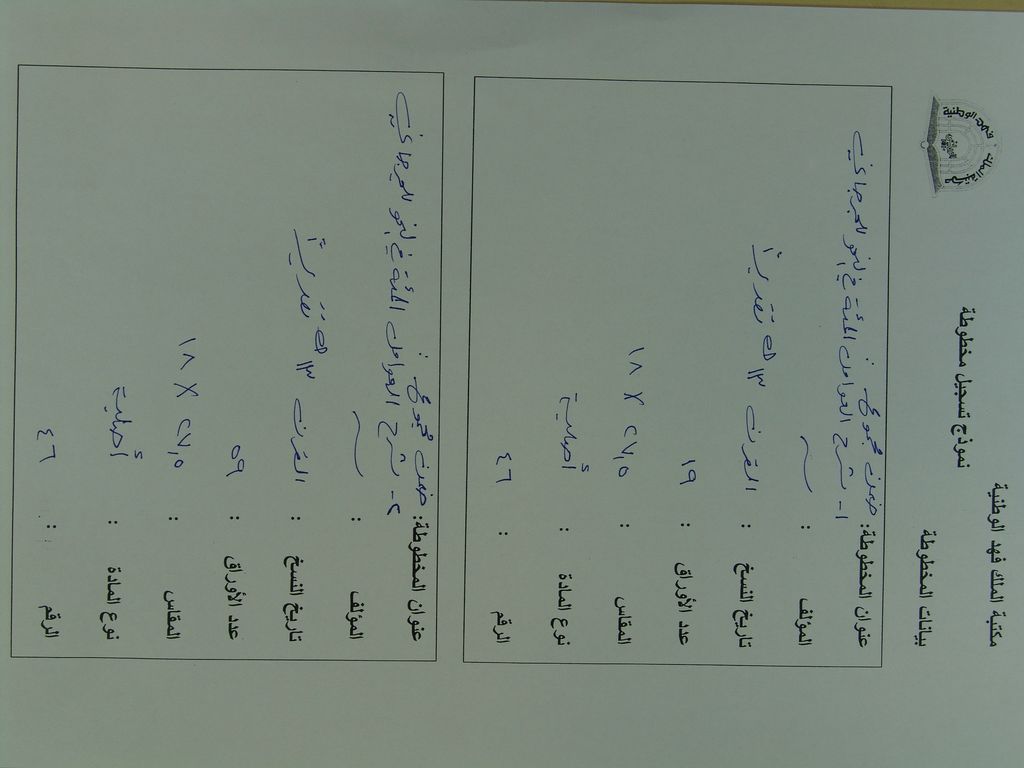 مكتبة الملك فهد الوطنية
مكتبة الملك فهد الوطنية
نموذج تسجيل مخطوطة
بيانات المخطوطة
عنوان المخطوطة: ضمن مجموع:
١- شرح العوامل المئة في النحو للجرجاني
المؤلف :
تاريخ النسخ : القرن ١٣ هـ تقديراً
عدد الأوراق : ١٩
المقاس : ٢٧,٥ × ١٨
نوع المادة : أصلية
الرقم : ٤٦
عنوان المخطوطة: ضمن مجموع:
٢- شرح العوامل المئة في النحو للجرجاني
المؤلف :
تاريخ النسخ : القرن ١٣ هـ تقديراً
عدد الأوراق : ٥٩
المقاس : ٢٧,٥ × ١٨
نوع المادة : أصلية
الرقم : ٤٦